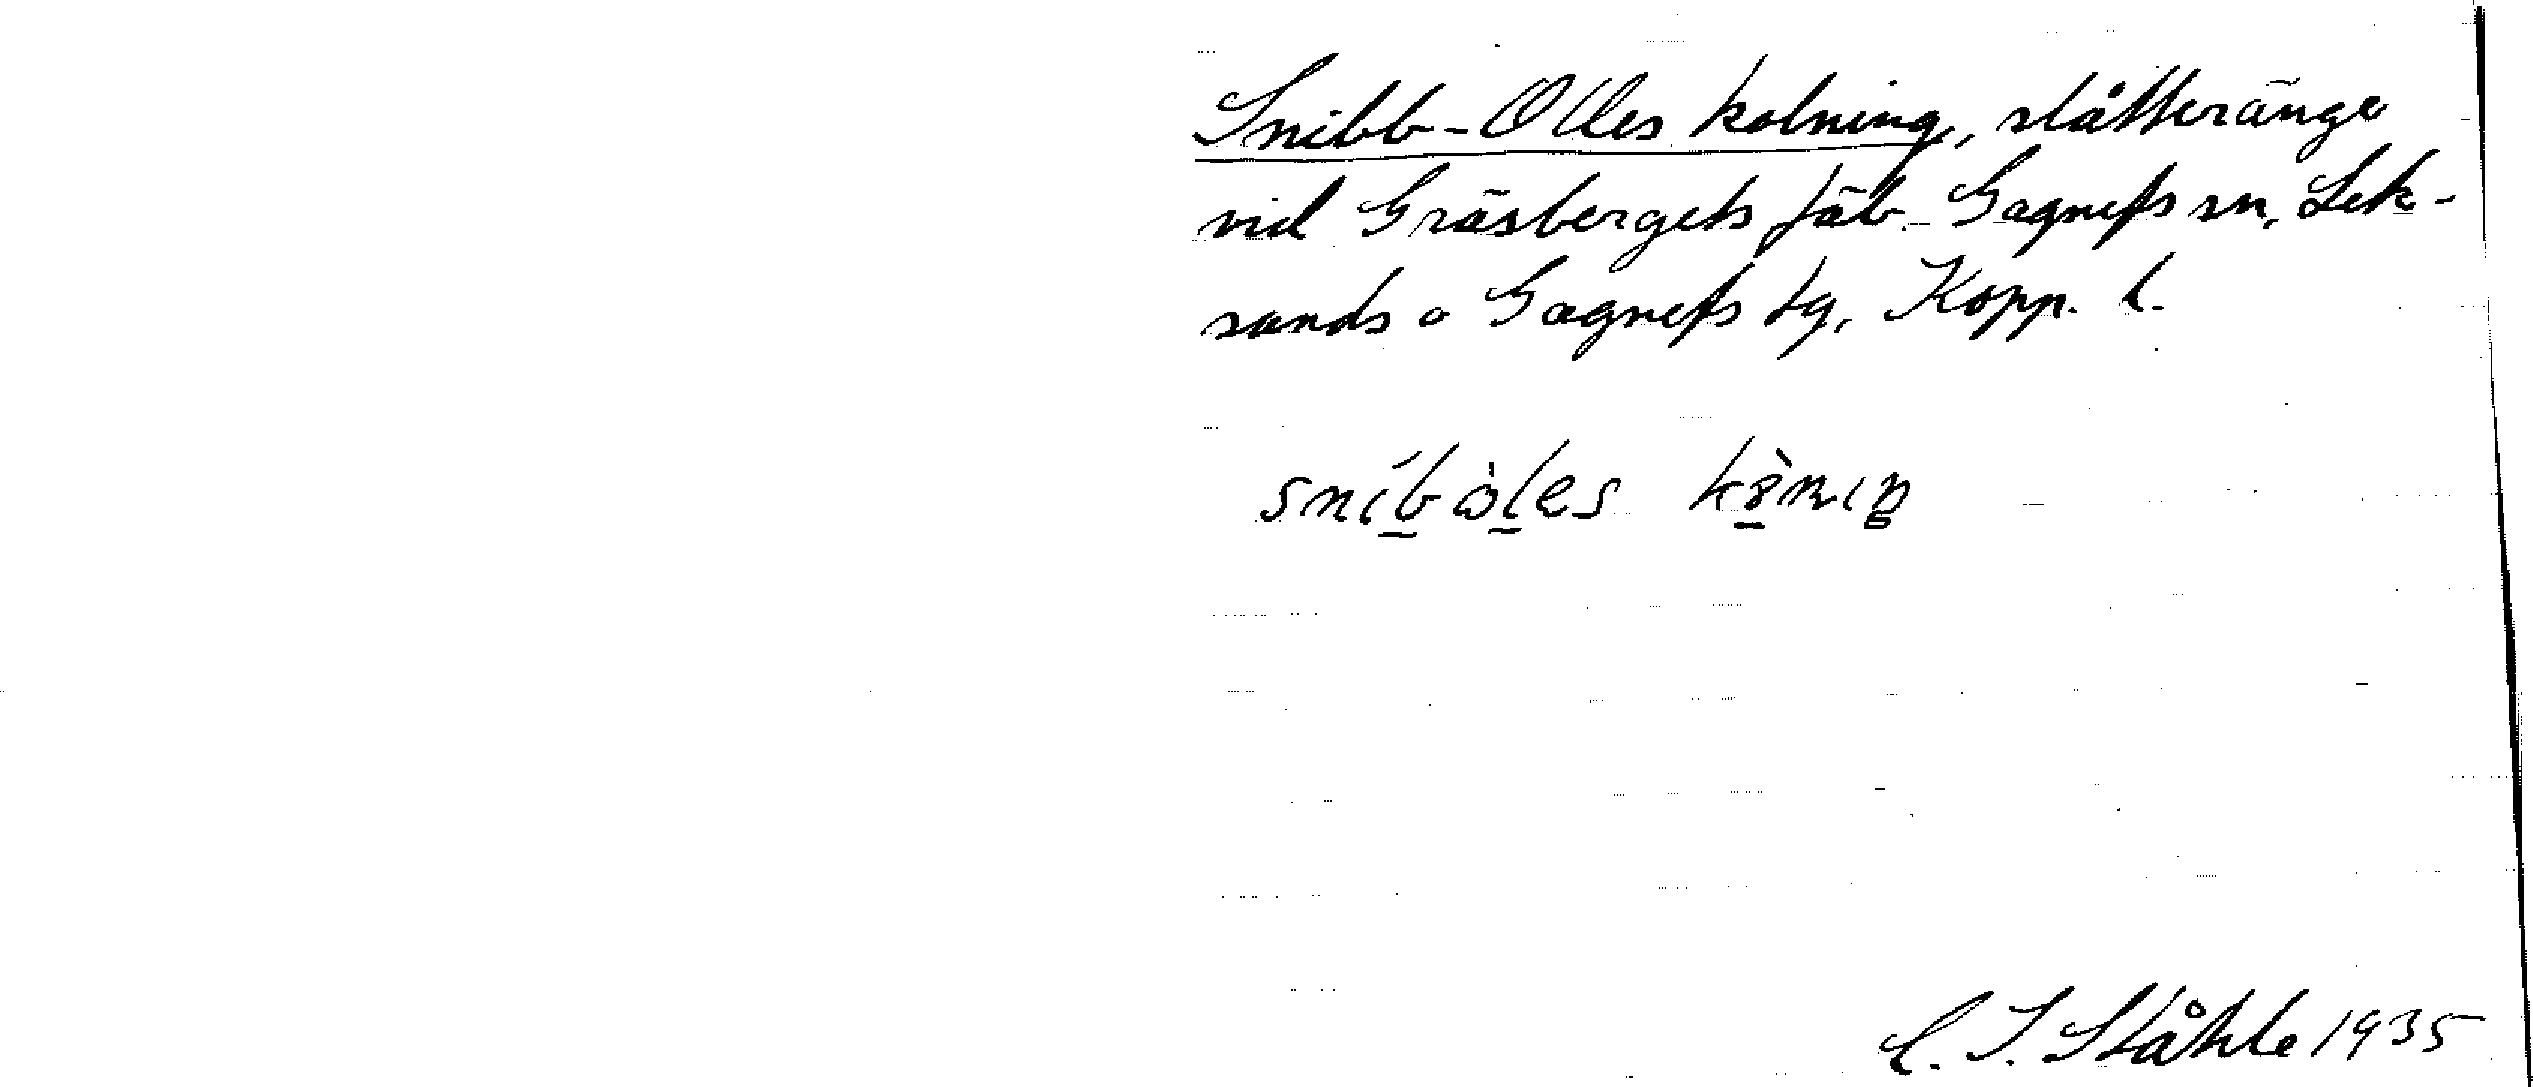 Snibb-Olles kolning, slåtteränge
vid Gräsbergets fäb. Gagnefs sn, Lek-
sands o Gagnefs tg, Kopp. l.
sníb̲ òl̲es kò̲niŋ
C. I. Ståhle 1935